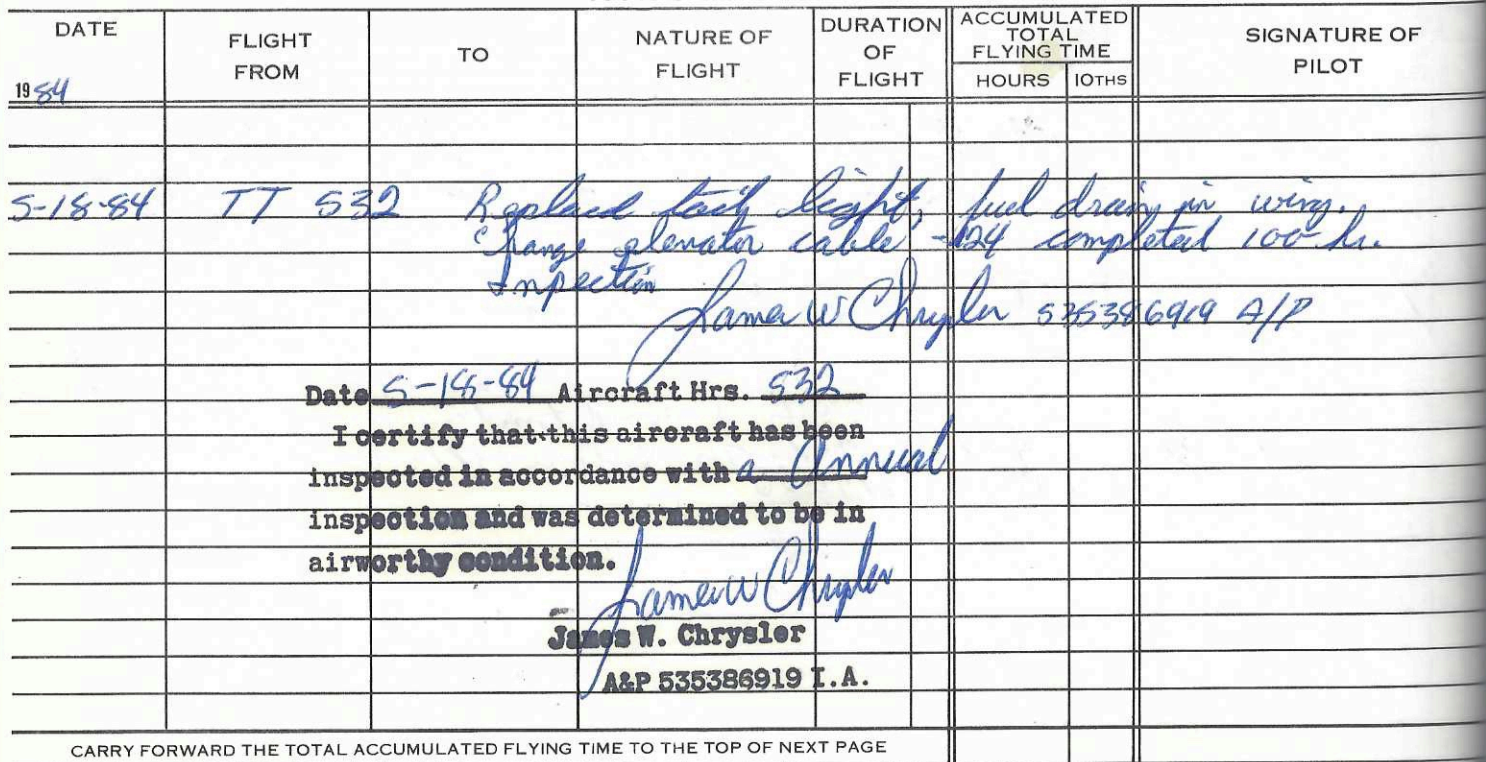 DATE FLIGHT FROM TO NATURE OF FLIGHT DURATION OF FLIGHT ACCUMULATED TOTAL FLYING TIME HOURS 10THS SIGNATURE OF PILOT
1984
5-18-84 TT 532 Replaced tail light, fuel drain in wing.
Change elevator cable -124 completed 100 hr.
Inspection
James W Chrysler 535386919 A/P
Date 5-18-84 Aircraft Hrs. 532
I certify that this aircraft has been
inspected in accordance with a Annual
inspection and was determined to be in
airworthy condition.
James W Chrysler
James W. Chrysler
A&P 535386919 I.A.
CARRY FORWARD THE TOTAL ACCUMULATED FLYING TIME TO THE TOP OF NEXT PAGE